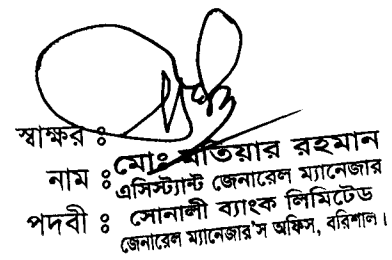 স্বাক্ষর ঃ
নাম ঃ মোঃ মতিয়ার রহমান
এসিস্ট্যান্ট জেনারেল ম্যানেজার
পদবী ঃ সোনালী ব্যাংক লিমিটেড
জেনারেল ম্যানেজার'স অফিস, বরিশাল।